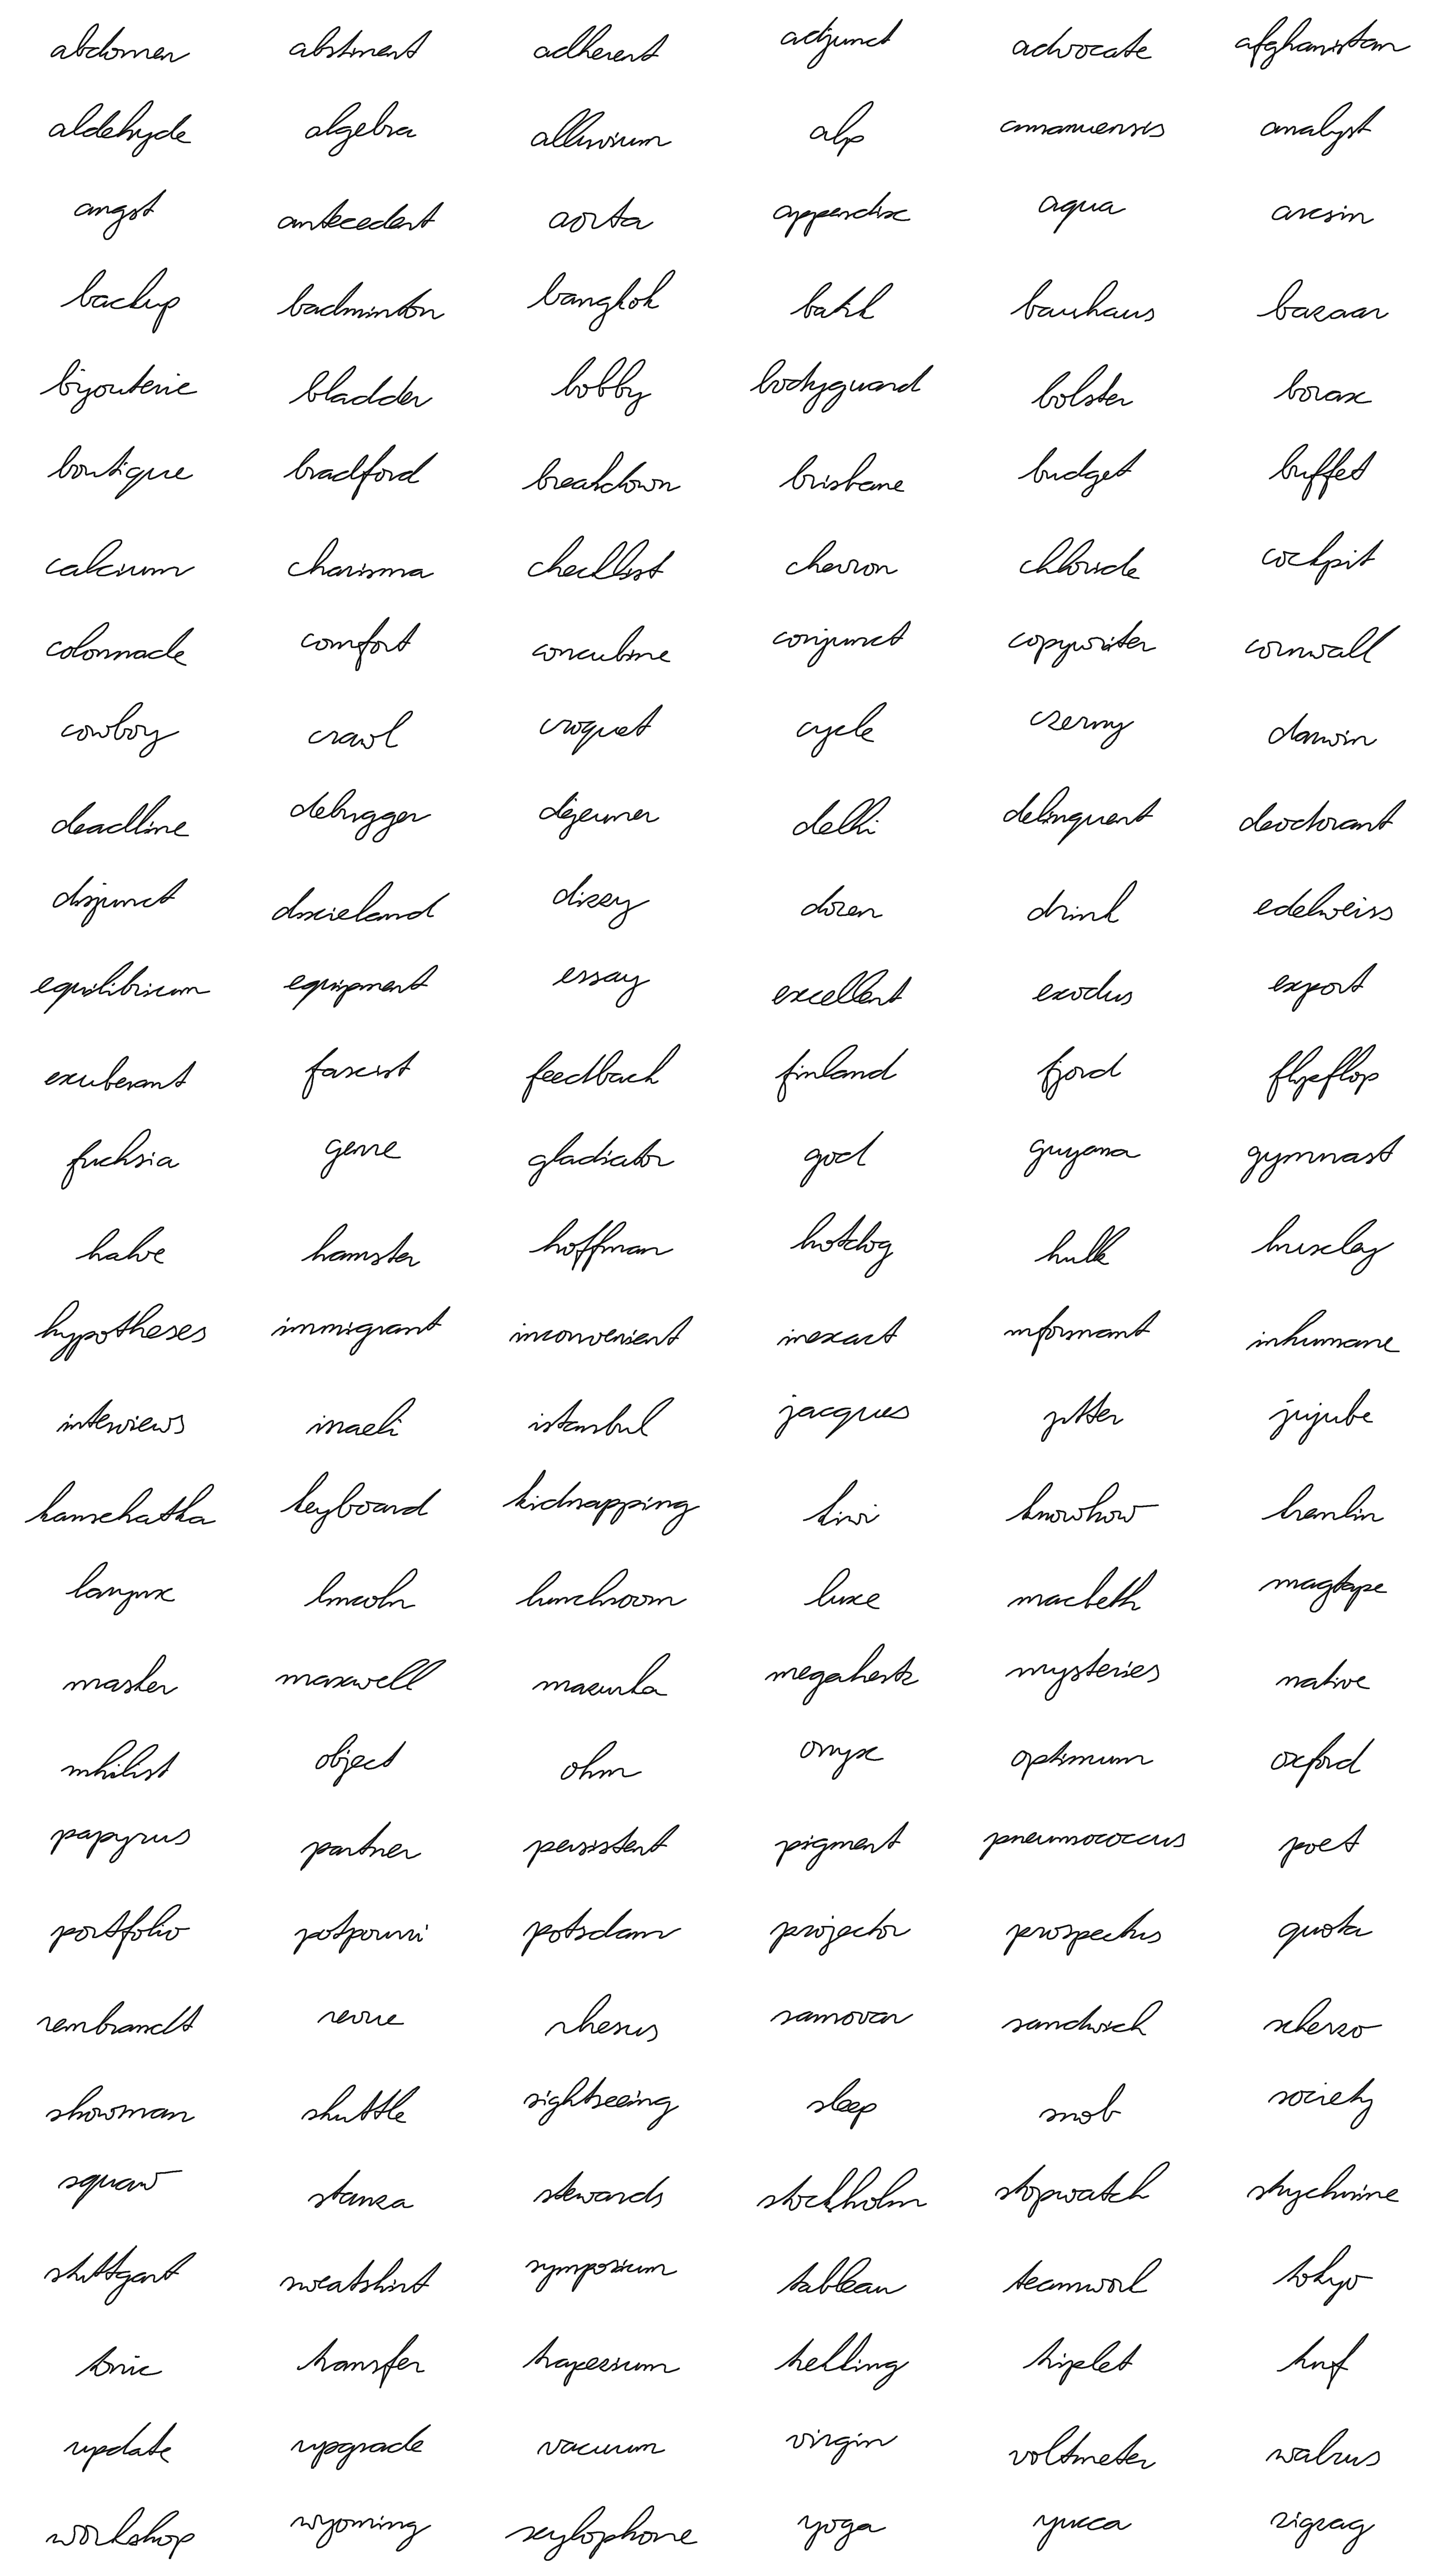 abdomen abstinent adherent adjunct advocate afghanistan
aldehyde algebra alluvium alp amanuensis analyst
angst antecedent aorta appendix aqua arcsin
backup badminton bangkok batik bauhaus bazaar
bijouterie bladder bobby bodyguard bolster borax
boutique bradford breakdown brisbane budget buffet
calcium charisma checklist chevron chloride cockpit
colonnade comfort concubine conjunct copywriter cornwall
cowboy crawl croquet cycle czerny darwin
deadline debugger dejeuner delhi delinquent deodorant
disjunct dixieland dizzy dozen drink edelweiss
equilibrium equipment essay excellent exodus export
exuberant fascist feedback finland fjord flipflop
fuchsia genre gladiator god guyana gymnast
halve hamster hoffman hotdog hulk huxley
hypotheses immigrant inconvenient inexact informant inhumane
interviews israeli istanbul jacques jitter jujube
kamchatka keyboard kidnapping kiwi knowhow kremlin
larynx lincoln lunchroom luxe macbeth magtape
master maxwell mazurka megahertz mysteries native
nihilist object ohm onyx optimum oxford
papyrus partner persistent pigment pneumococcus poet
portfolio potpourri potsdam projector prospectus quota
rembrandt revue rhesus samovar sandwich scherzo
showman shuttle sightseeing sleep snob society
squaw stanza stewards stockholm stopwatch strychnine
stuttgart sweatshirt symposium tableau teamwork tokyo
tonic transfer trapezium trelling triplet truf
update upgrade vacuum virgin voltmeter walrus
workshop wyoming xylophone yoga yucca zigzag